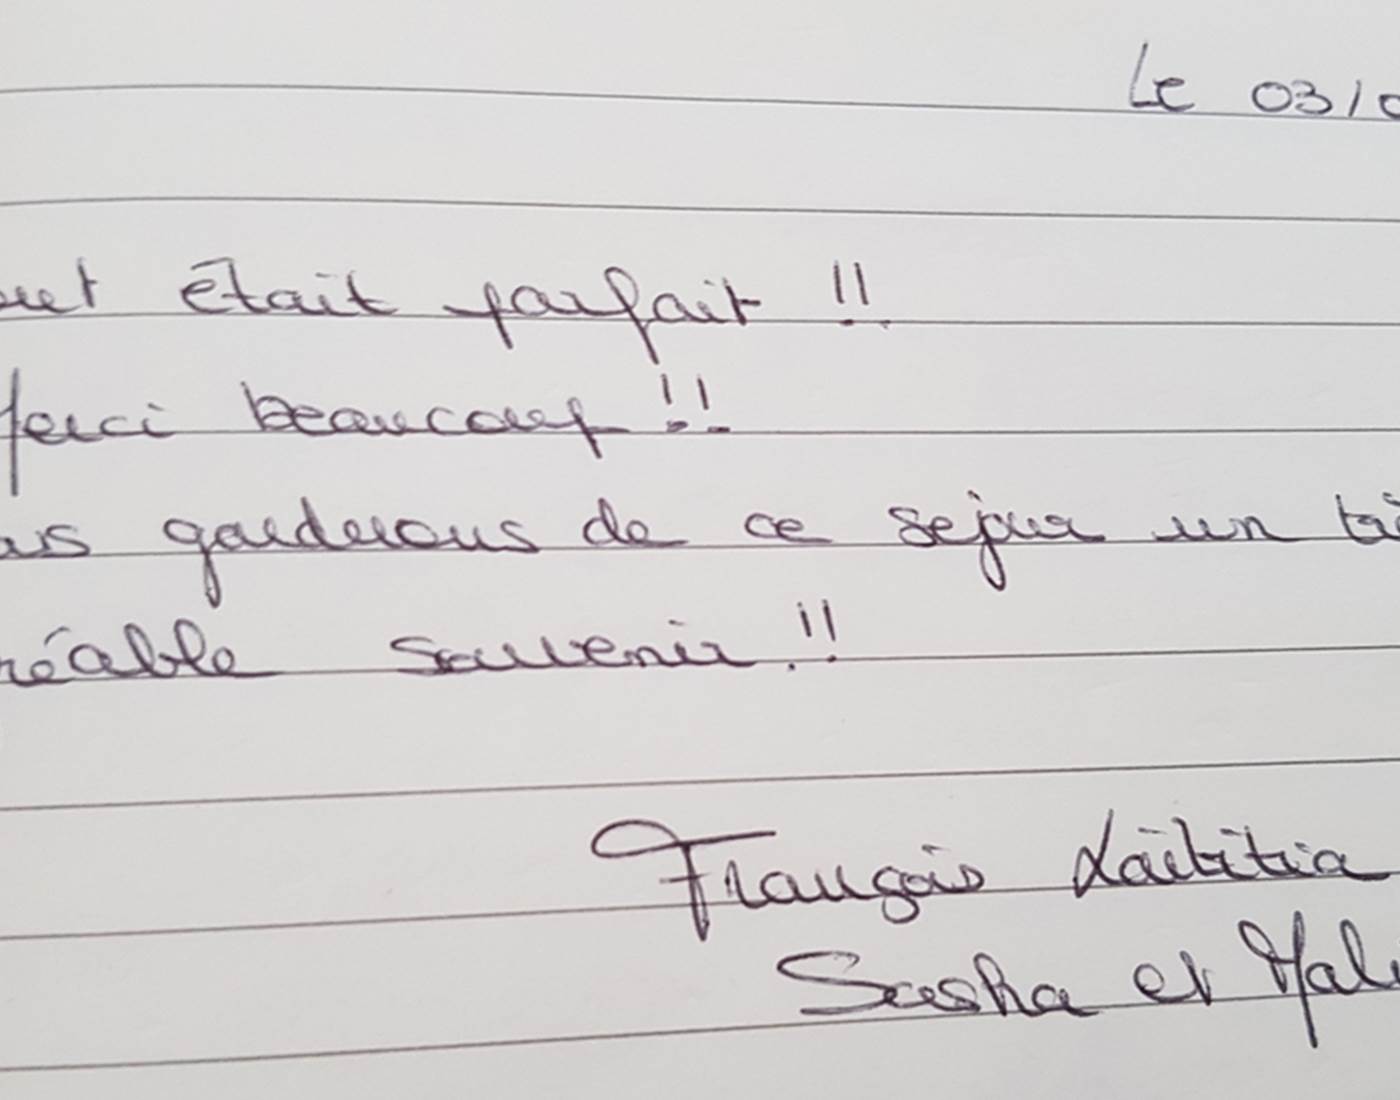 Le 03/0
out était parfait !!
Merci beaucoup !!
us garderons de ce sejour un t
réable souvenir !!
François Laëtitia
Sasha et Mal